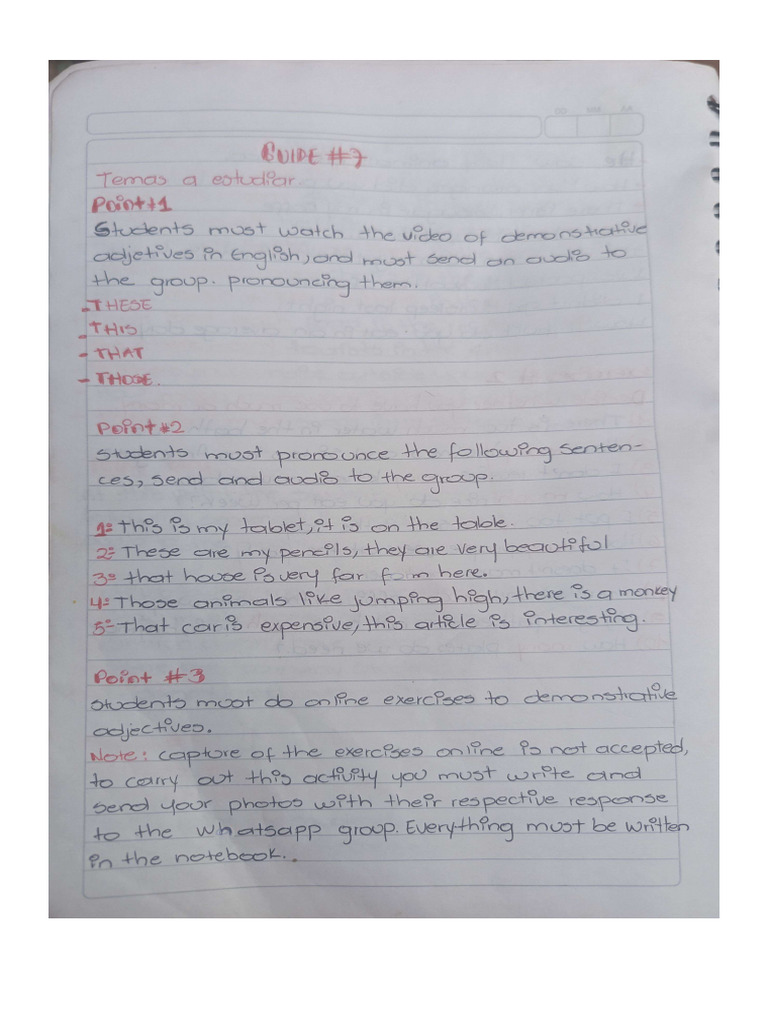 GUIDE #7
Temas a estudiar
Point #1
Students must watch the video of demonstrative
adjetives in English, and must send an audio to
the group. pronouncing them.
- THESE
- THIS
- THAT
- THOSE.
Point #2
Students must pronounce the following senten-
ces, send and audio to the group.
1= This is my tablet, it is on the table.
2= These are my pencils, they are very beautiful
3= that house is very far from here.
4= Those animals like jumping high, there is a monkey
5= That car is expensive, this article is interesting.
Point #3
Students must do online exercises to demonstrative
adjectives.
Note: capture of the exercises online is not accepted,
to carry out this activity you must write and
send your photos with their respective response
to the whatsapp group. Everything must be written
in the notebook..